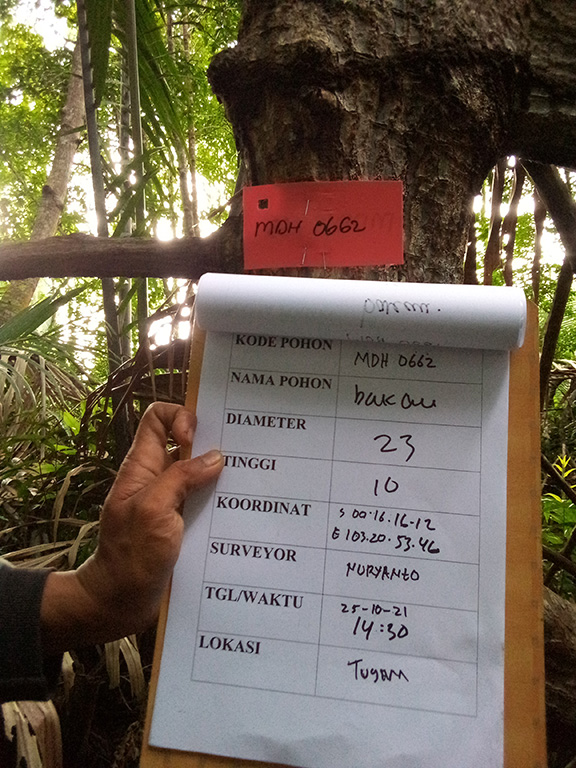 MDH 0662
KODE POHON MDH 0662
NAMA POHON bakau
DIAMETER 23
TINGGI 10
KOORDINAT S 00.16.16.12
E 103.20.53.46
SURVEYOR NURYANTO
TGL/WAKTU 25-10-21
14:30
LOKASI Tugam